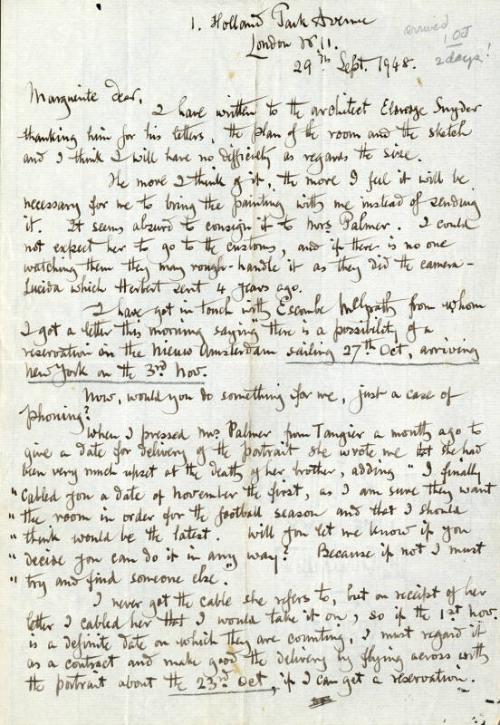 1. Holland Park Avenue
London W.11.
29th Sept. 1948.
arrived
1 Oct
2 days!
Marguerite dear,
I have written to the architect Snyder
thanking him for his letters, the plan of the room and the sketch
and I think I will have no difficulty as regards the size.
The more I think of it, the more I feel it will be
necessary for me to bring the painting with me instead of sending
it. It seems absurd to consign it to Mrs Palmer. I could
not expect her to go to the customs, and if there is no one
watching them they may rough-handle it as they did the camera-
Lucida which Herbert sent 4 years ago.
I have got in touch with Escombe McGrath from whom
I got a letter this morning saying "there is a possibility of a
reservation on the Nieuw Amsterdam sailing 27th Oct, arriving
New York on the 3rd Nov.
Now, would you do something for me, just a case of
phoning?
When I pressed Mrs. Palmer from Tangier a month ago to
give a date for delivery of the portrait she wrote me that she had
been very much upset at the death of her brother, adding "I finally
" cabled you a date of November the first, as I am sure they want
" the room in order for the football season and that I should
" think would be the latest. Will you let me know if you
" decide you can do it in any way? Because if not I must
" try and find someone else."
I never got the cable she refers to, but on receipt of her
letter I cabled her that I would take it on, so if the 1st Nov.
is a definite date on which they are counting, I must regard it
as a contract and make good the delivery by flying across with
the portrait about the 23rd Oct, if I can get a reservation.